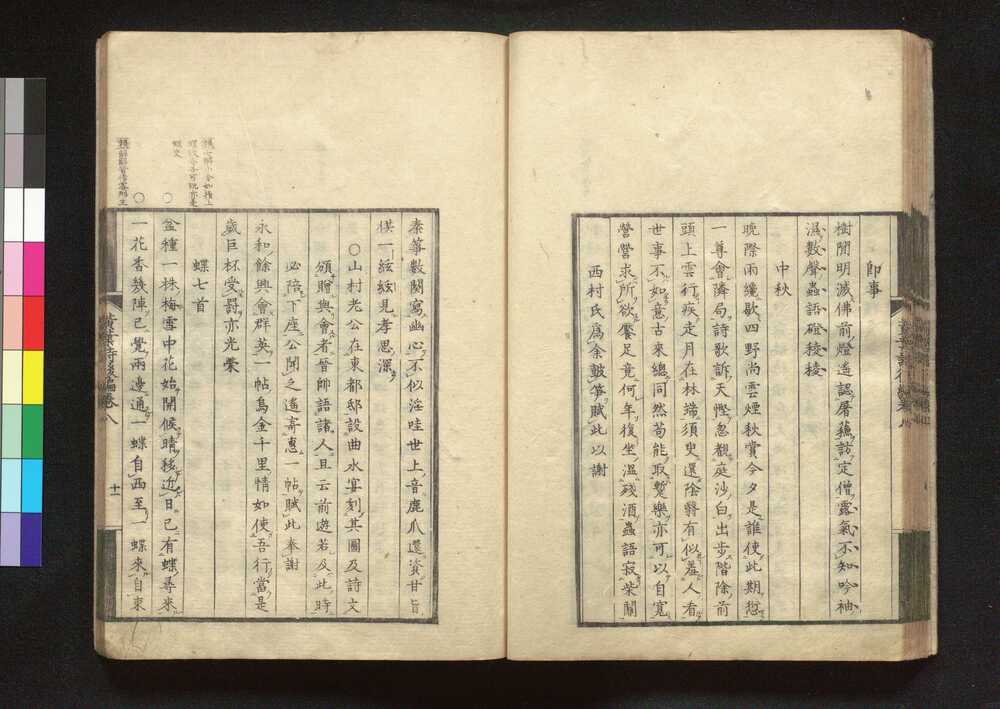 即事
樹間明滅佛前燈遥認屠蘓訪定僧露氣不知吟袖
濕數聲蟲語磴稜稜
中秋
晩際雨纔歇四野尚雲煙秋賞今夕是誰使此期愆
一尊會隣局詩歌訴天慳忽覩庭沙白出步階除前
頭上雲行疾走月在林端須臾還陰翳有似羞人看
世事不如意古來總同然苟能取蹔樂亦可以自寬
營營求所欲饜足竟何年復坐温殘酒蟲語寂柴關
西村氏爲余皷箏賦此以謝
秦箏數闋寫幽心不似淫哇世上音鹿爪還資甘旨
供一絃絃見孝思深
○山村老公在東都邸設曲水宴刻其圖及詩文
頒贈與會者晉帥語諸人且云前遊若及此時
必陪下座公聞之遙寄惠一帖賦此奉謝
永和餘興會群英一帖烏金千里情如使吾行當是
歲巨杯受罰亦光榮
蝶七首
盆種一株梅雪中花始開候晴移近日已有蝶尋來
一花香幾陣已覺兩邊通一蝶自西至一蝶來自東
黄葉夕陽後編卷八
十一